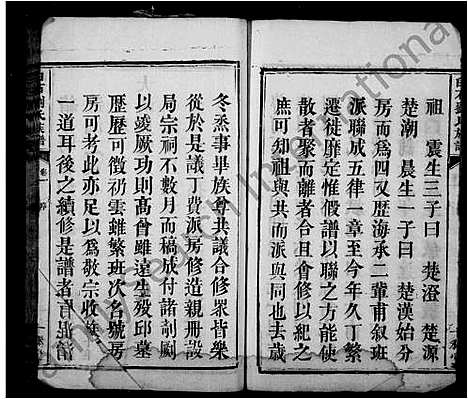 祖　震生三子曰　楚澄　楚源
楚潮　晨生一子曰　楚漢始分
房而爲四又歷海承二輩甫叙班
派聯成五律一章至今年久丁繁
遷徙靡定惟假譜以聯之方能使
散者聚而離者合且會修以紀之
庶可卻祖與共而派與同也去歲
冬烝事畢族尊共議合修衆皆樂
從於是議丁費派房修造親册設
局宗祠不數月而稿成付諸剞劂
以竣厥功則高曾雖遠生殁邱墓
歷歷可徵礽雲雖繁班次名號房
房可考此亦足以爲敬宗收族
一道耳後之續修是譜者